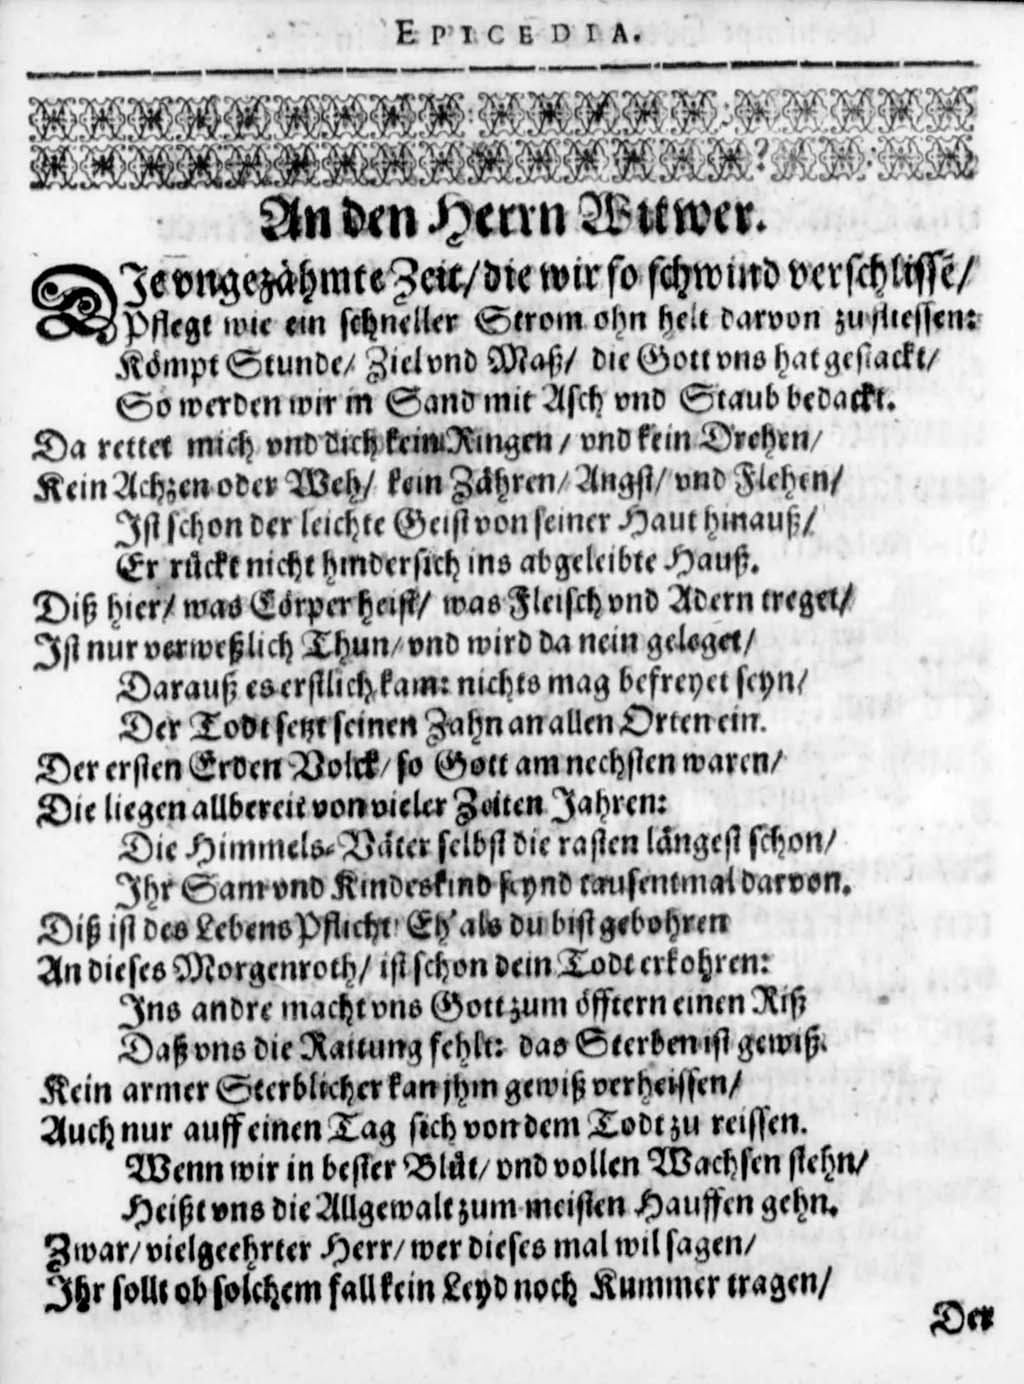 EPICEDIA.
An den Herrn Witwer.
DIe vngezähmte Zeit/ die wir so schwind verschlissē/
Pflegt wie ein schneller Strom ohn helt darvon zu fliessen:
Kömpt Stunde/ Ziel vnd Maß/ die Gott vns hat gestackt/
So werden wir in Sand mit Asch vnd Staub bedackt.
Da rettet mich vnd dich kein Ringen/ vnd kein Drehen/
Kein Achzen oder Weh/ kein Zähren/ Angst/ vnd Flehen/
Ist schon der leichte Geist von seiner Haut hinauß/
Er rückt nicht hindersich ins abgeleibte Hauß.
Diß hier/ was Cörper heist/ was Fleisch vnd Adern treget/
Ist nur verweßlich Thun/ vnd wird da nein geleget/
Darauß es erstlich kam: nichts mag befreyet seyn/
Der Todt setzt seinen Zahn an allen Orten ein.
Der ersten Erden Volck/ so Gott am nechsten waren/
Die liegen allbereit von vieler Zeiten Jahren:
Die Himmels-Väter selbst die rasten längest schon/
Ihr Sam vnd Kindeskind seynd tausentmal darvon.
Diß ist des Lebens Pflicht! Eh' als du bist gebohren
An dieses Morgenroth/ ist schon dein Todt erkohren:
Ins andre macht vns Gott zum öfftern einen Riß
Daß vns die Raitung fehlt: das Sterben ist gewiß.
Kein armer Sterblicher kan jhm gewiß verheissen/
Auch nur auff einen Tag sich von dem Todt zu reissen.
Wenn wir in bester Blüt/ vnd vollen Wachsen stehn/
Heißt vns die Allgewalt zum meisten Hauffen gehn.
Zwar/ vielgeehrter Herr/ wer dieses mal wil sagen/
Ihr sollt ob solchem fall kein Leyd noch Kummer tragen/
Der